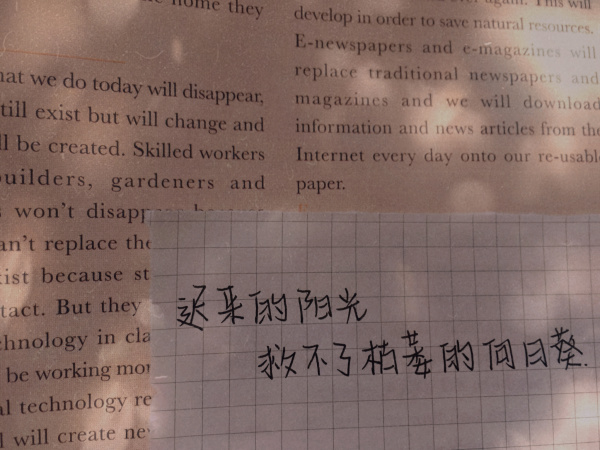 home they
hat we do today will disappear,
till exist but will change and
ll be created. Skilled workers
builders, gardeners and
won't
an't replace the
ist because st
tact. But they
chnology in cla
be working mor
al technology re
will create ne
again. This will
develop in order to save natural resources.
E-newspapers and e-magazines will
replace traditional newspapers and
magazines and we will download
information and news articles from the
Internet every day onto our re-usable
paper.
迟来的阳光
救不了枯萎的向日葵.